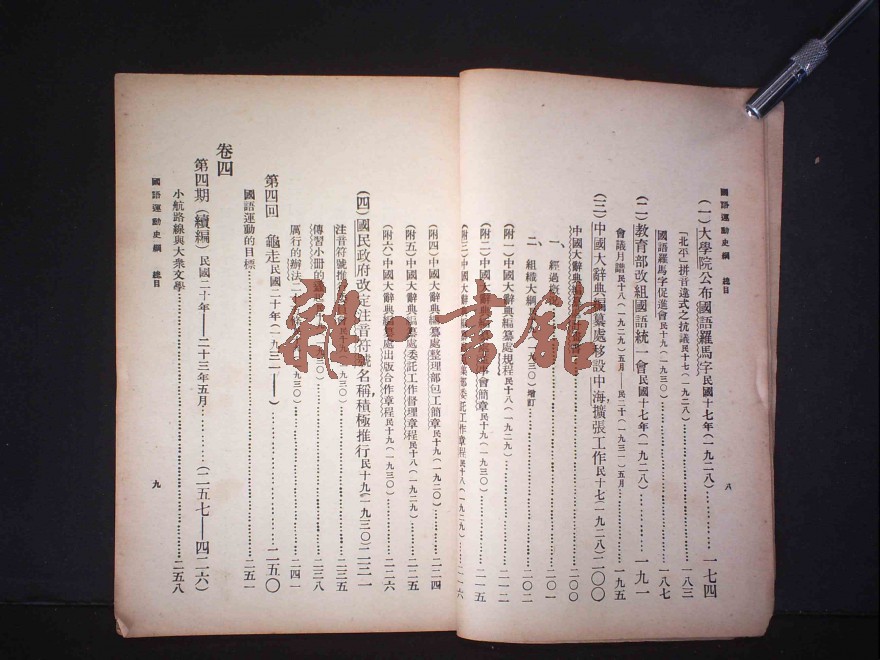 國語運動史綱　總目　八
(一)大學院公布國語羅馬字民國十七年(一九二八)…………一七四
「北平」拼音違式之抗議民十七(一九二八)…………一八三
國語羅馬字促進會民十九(一九三〇)…………一八七
(二)教育部改組國語統一會民國十七年(一九二八)…………一九一
會議月譜民十八(一九二九)五月——民二十(一九三一)五月…………一九五
(三)中國大辭典編纂處移設中海,擴張工作民十七(一九二八)二〇〇
中國大辭典編纂…………二〇〇
一、經過概況…………二〇一
二、組織大綱民…(一九三〇)增訂…………二〇二
(附一)中國大辭典編纂處規程民十八(一九二九)…………二一二
(附二)中國大辭典編…會簡章民十九(一九三〇)…………二一五
(附三)中國大辭典編…部委託工作章程民十八(一九二九)…………二一六
(附四)中國大辭典編纂處整理部包工簡章民十九(一九三〇)…………二二四
(附五)中國大辭典編纂處委託工作督理章程民十八(一九二九)…………二二五
(附六)中國大辭典編纂處出版合作章程民十九(一九三〇)…………二二六
(四)國民政府改定注音符號名稱,積極推行民十九(一九三〇)二三一
注音符號推…會民十九(一九三〇)…………二三五
傳習小冊的…(一九三〇)…………二三八
厲行的辦法二十…(一九三〇)…………二四一
第四回　龜走民國二十年(一九三一——)…………二五〇
國語運動的目標…………二五一
卷四
第四期(續編)民國二十年——二十三年五月…………(二五七——四二六)
小航路線與大眾文學…………二五八
國語運動史綱　總目　九
雜·書館